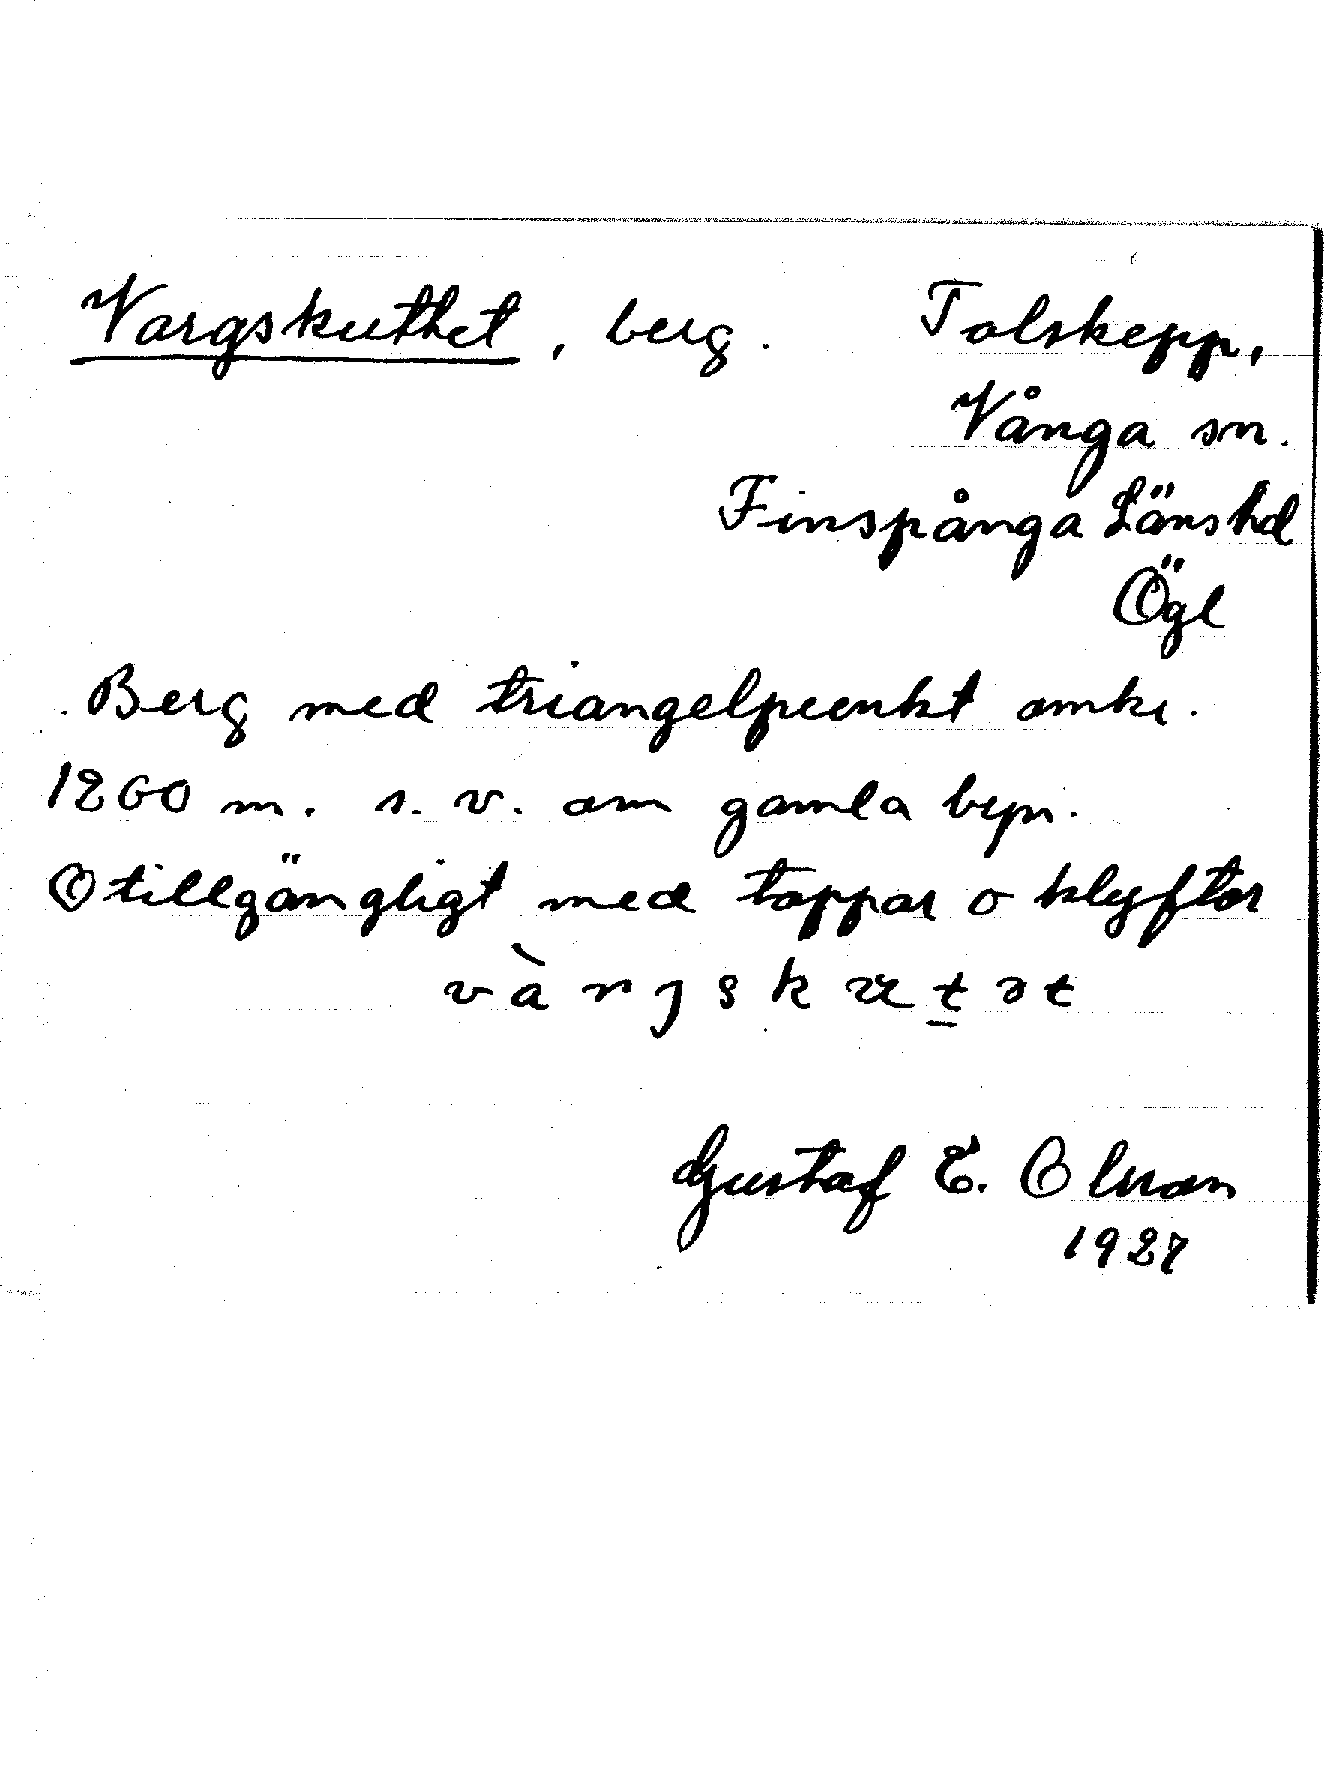 Vargskuthet, berg. Tolskepp,
Vånga sn.
Finspånga Länshd
Ögl
Berg med triangelpunkt omkr.
1200 m. s. v. om gamla byn.
Otillgängligt med toppar o klyftor
Gustaf E. Olsson
1927